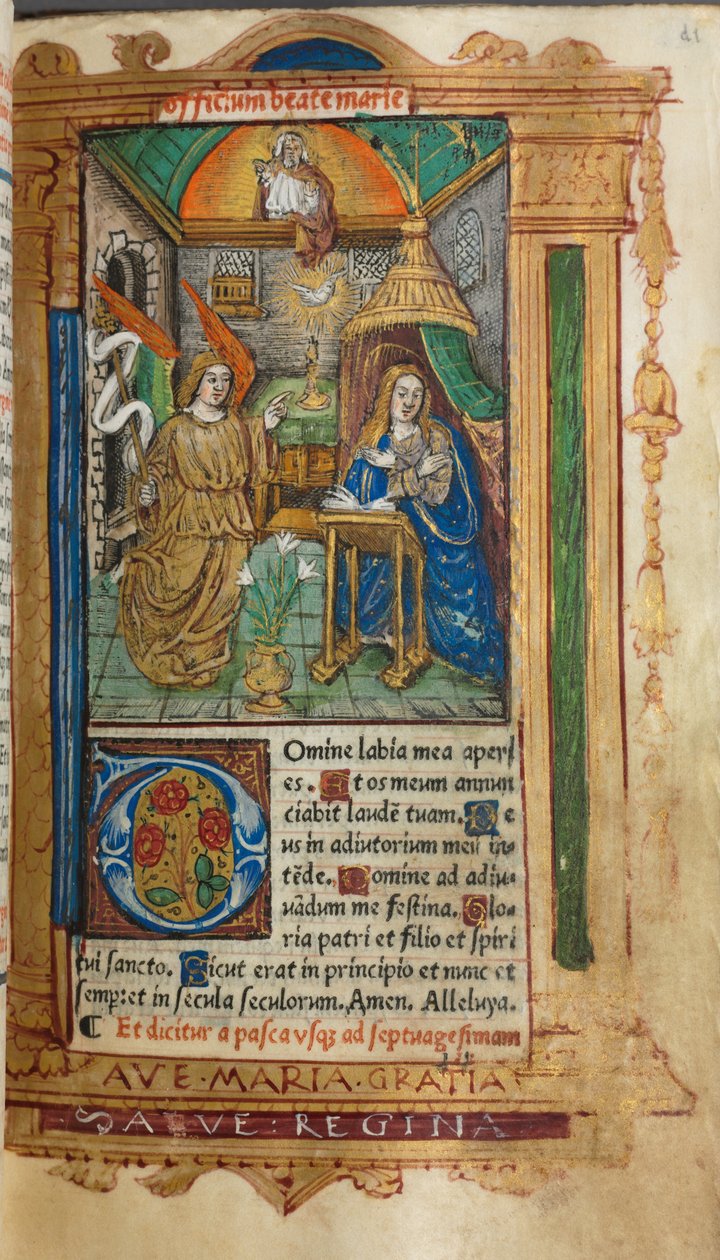 d1
officium beate marie
Domine labia mea aperi
es. Et os meum annun
ciabit laudē tuam. De
us in adiutorium meū in-
tēde. Domine ad adiu-
uādum me festina. Glo-
ria patri et filio et spiri
tui sancto. Sicut erat in principio et nunc et
semp: et in secula seculorum. Amen. Alleluya.
¶ Et dicitur a pasca vsqꝫ ad septuagesimam
AVE·MARIA·GRATIA
SALVE : REGINA